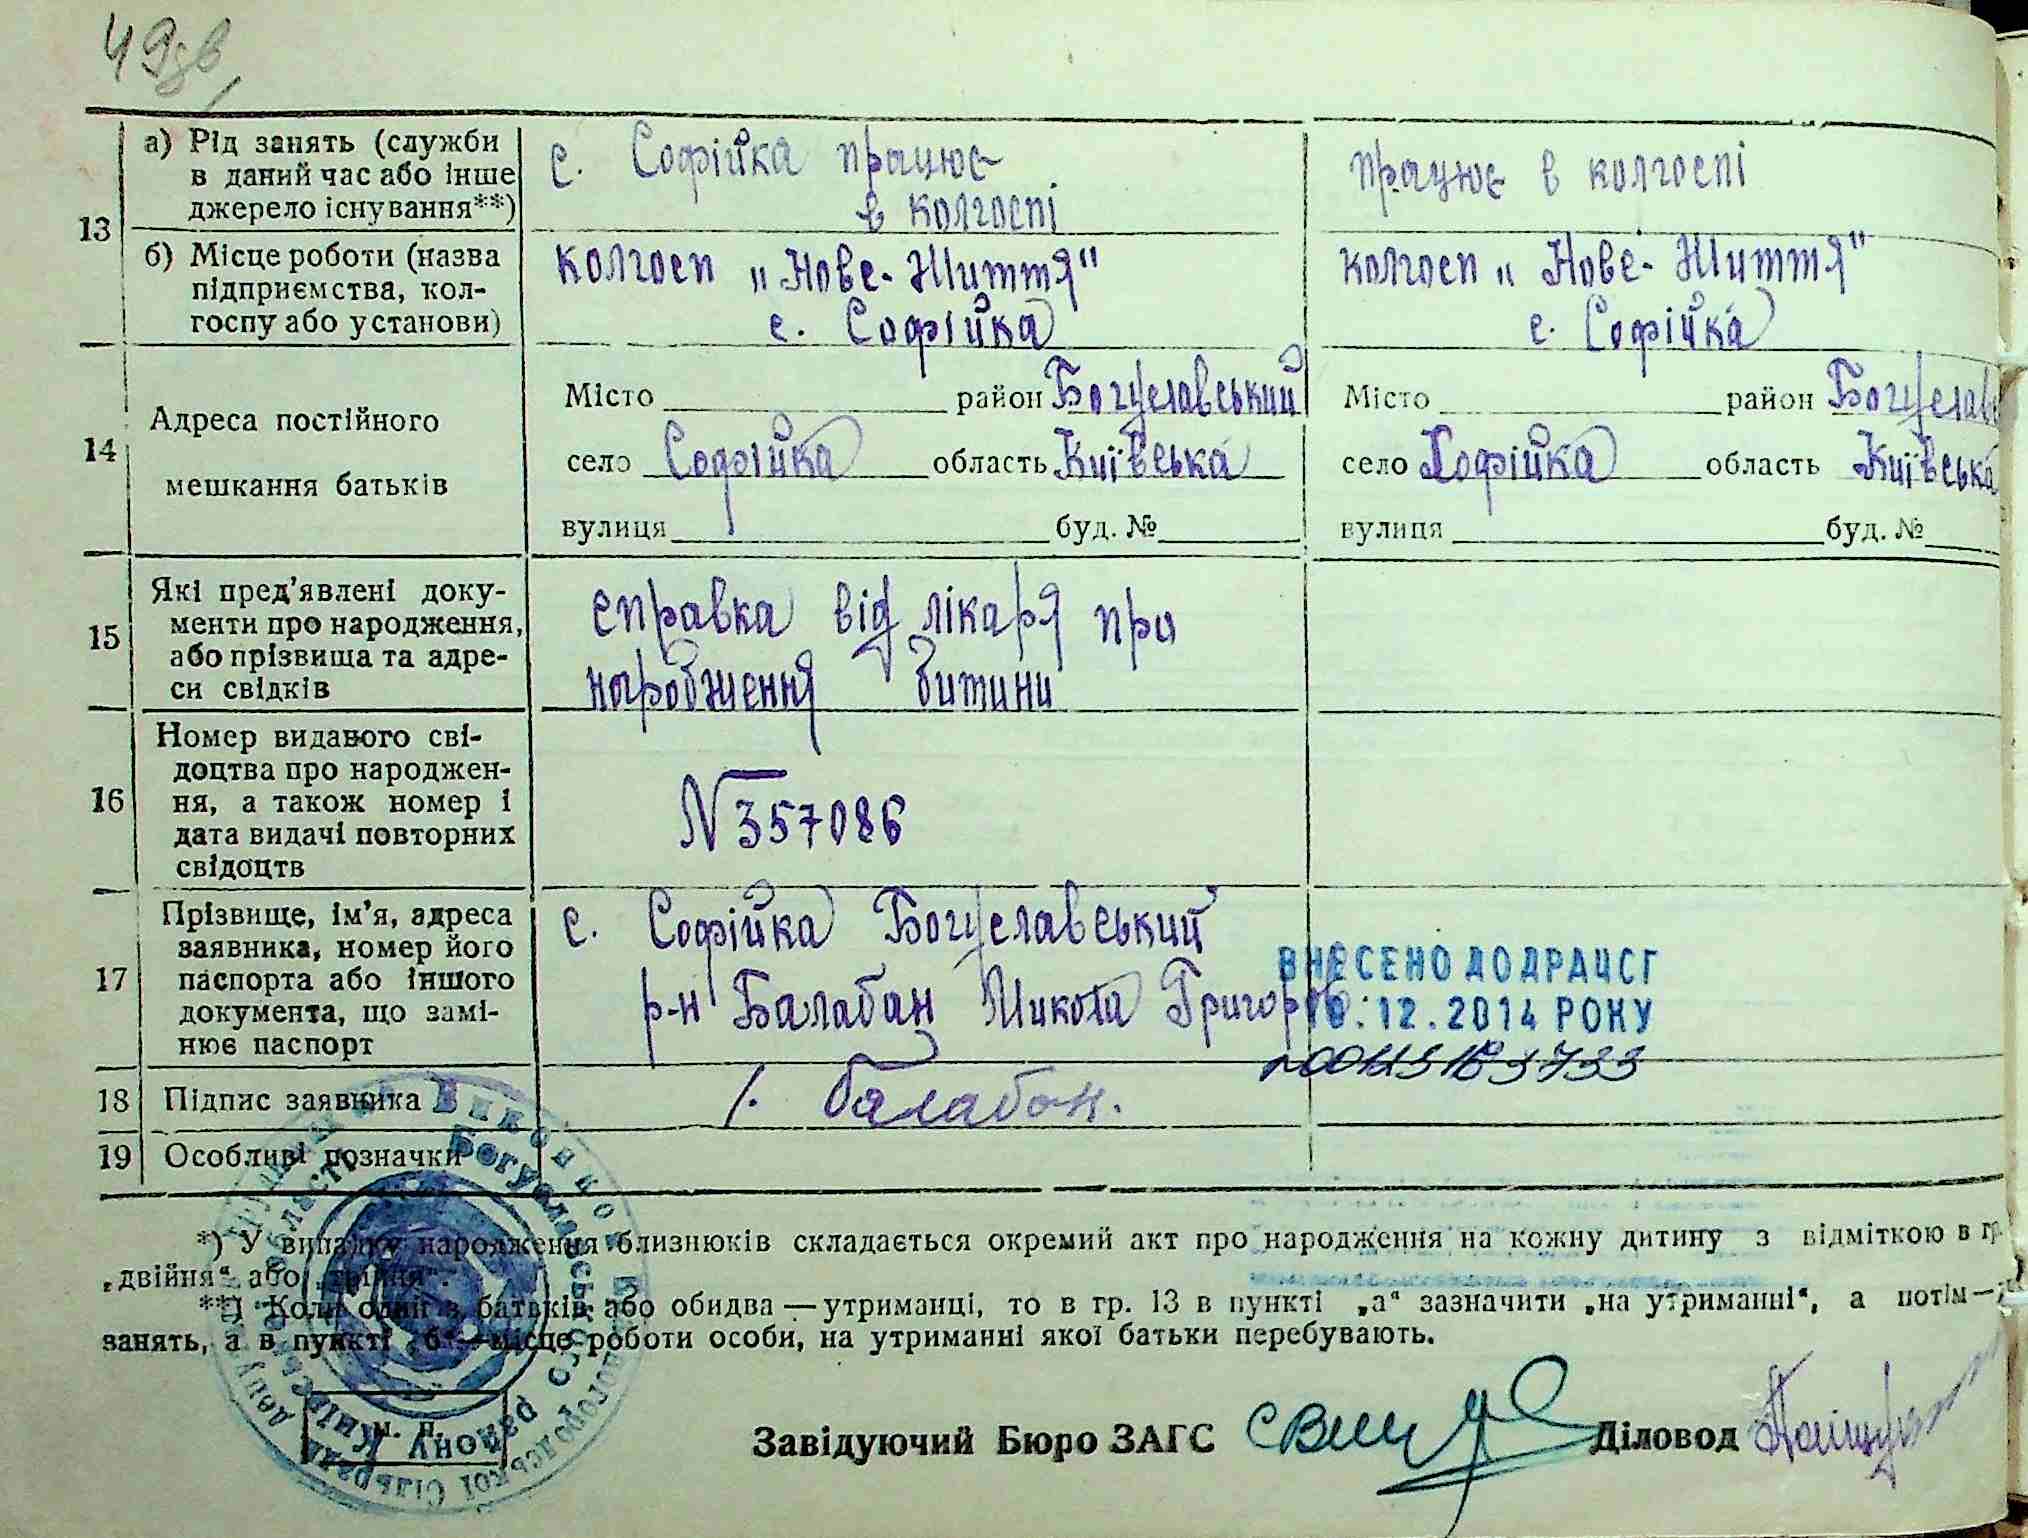 49зв
13 а) Рід занять (служби в даний час або інше джерело існування**)
с. Софійка працює
в колгоспі
працює в колгоспі
б) Місце роботи (назва підприємства, колгоспу або установи)
колгосп „Нове-Життя"
с. Софійка
колгосп „Нове-Життя"
с. Софійка
14 Адреса постійного мешкання батьків
Місто район Богуславський
село Софійка область Київська
вулиця буд. №
Місто район Богуслав
село Софійка область Київська
вулиця буд. №
15 Які пред'явлені документи про народження, або прізвища та адреси свідків
справка від лікаря про
народження дитини
16 Номер виданого свідоцтва про народження, а також номер і дата видачі повторних свідоцтв
N 357086
17 Прізвище, ім'я, адреса заявника, номер його паспорта або іншого документа, що замінює паспорт
с. Софійка Богуславський
р-н Балабан Микола Григоров
ВНЕСЕНО ДО ДРАЦСГ
12.2014 РОКУ
18 Підпис заявника
Балабан.
19 Особливі позначки
*) У випадку народження близнюків складається окремий акт про народження на кожну дитину з відміткою в гр.
„двійня“ або „трійня“.
**) Коли один з батьків або обидва — утриманці, то в гр. 13 в пункті „а“ зазначити „на утриманні“, а потім —
занять, а в пункті „б“ — місце роботи особи, на утриманні якої батьки перебувають.
М. П.
Завідуючий Бюро ЗАГС
Діловод
Богуславського району Київської області